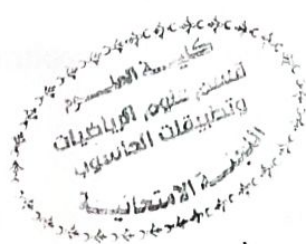 كليـــة العلـــوم
قسم علوم الرياضيات
وتطبيقات الحاسوب
اللجنـــة الامتحانيـــة